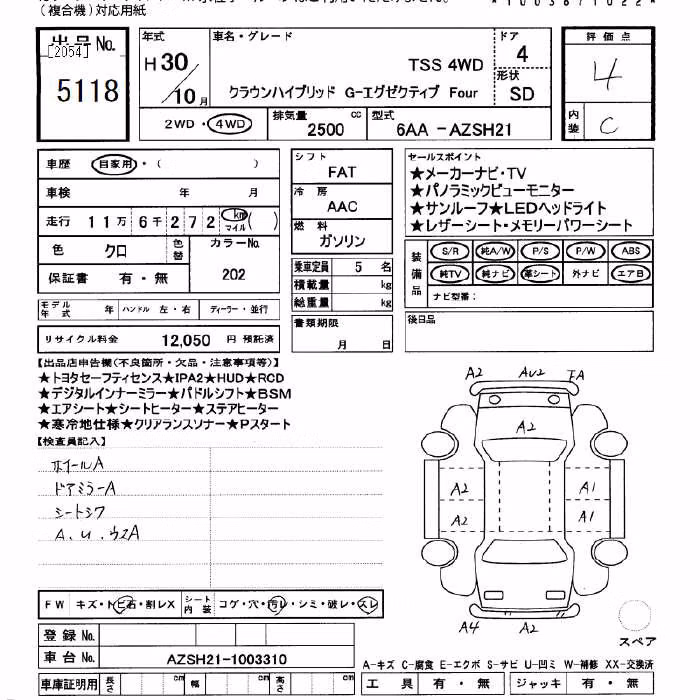 (複合機)対応用紙
*10038/1022*
出品No.
[2054]
5118
年式
H30/10月
車名・グレード
TSS 4WD
クラウンハイブリッド G-エグゼクティブ Four
ドア
4
形状
SD
2WD・4WD
排気量
2500 cc
型式
6AA -AZSH21
評価点
4
内装
C
車歴 自家用・( )
車検 年 月
走行 11万6千272 km マイル ( )
色 クロ 色替 カラーNo.
保証書 有・無 202
モデル年式 年 ハンドル 左・右 ディーラー・並行
リサイクル料金 12,050 円 預託済
シフト
FAT
冷房
AAC
燃料
ガソリン
乗車定員 5 名
積載量 kg
総重量 kg
書類期限
月 日
セールスポイント
★メーカーナビ・TV
★パノラミックビューモニター
★サンルーフ★LEDヘッドライト
★レザーシート・メモリーパワーシート
装備品
S/R 純A/W P/S P/W ABS
純TV 純ナビ 革シート 外ナビ エアB
ナビ型番:
後日品
【出品店申告欄(不良箇所・欠品・注意事項等)】
★トヨタセーフティセンス★IPA2★HUD★RCD
★デジタルインナーミラー★パドルシフト★BSM
★エアシート★シートヒーター★ステアヒーター
★寒冷地仕様★クリアランスソナー★Pスタート
【検査員記入】
ホイールA
ドアミラーA
シートシワ
A、U、ウスA
A2 AU2 A
A2
A2 A1
A2 A1
A4 A2
スペア
FW キズ・トビ石・割レX シート内装 コゲ・穴・汚レ・シミ・破レ・スレ
登録No.
車台No. AZSH21-1003310
車庫証明用 長さ cm 幅 cm 高さ cm
A-キズ C-腐食 E-エクボ S-サビ U-凹ミ W-補修 XX-交換済
工具 有・無 ジャッキ 有・無